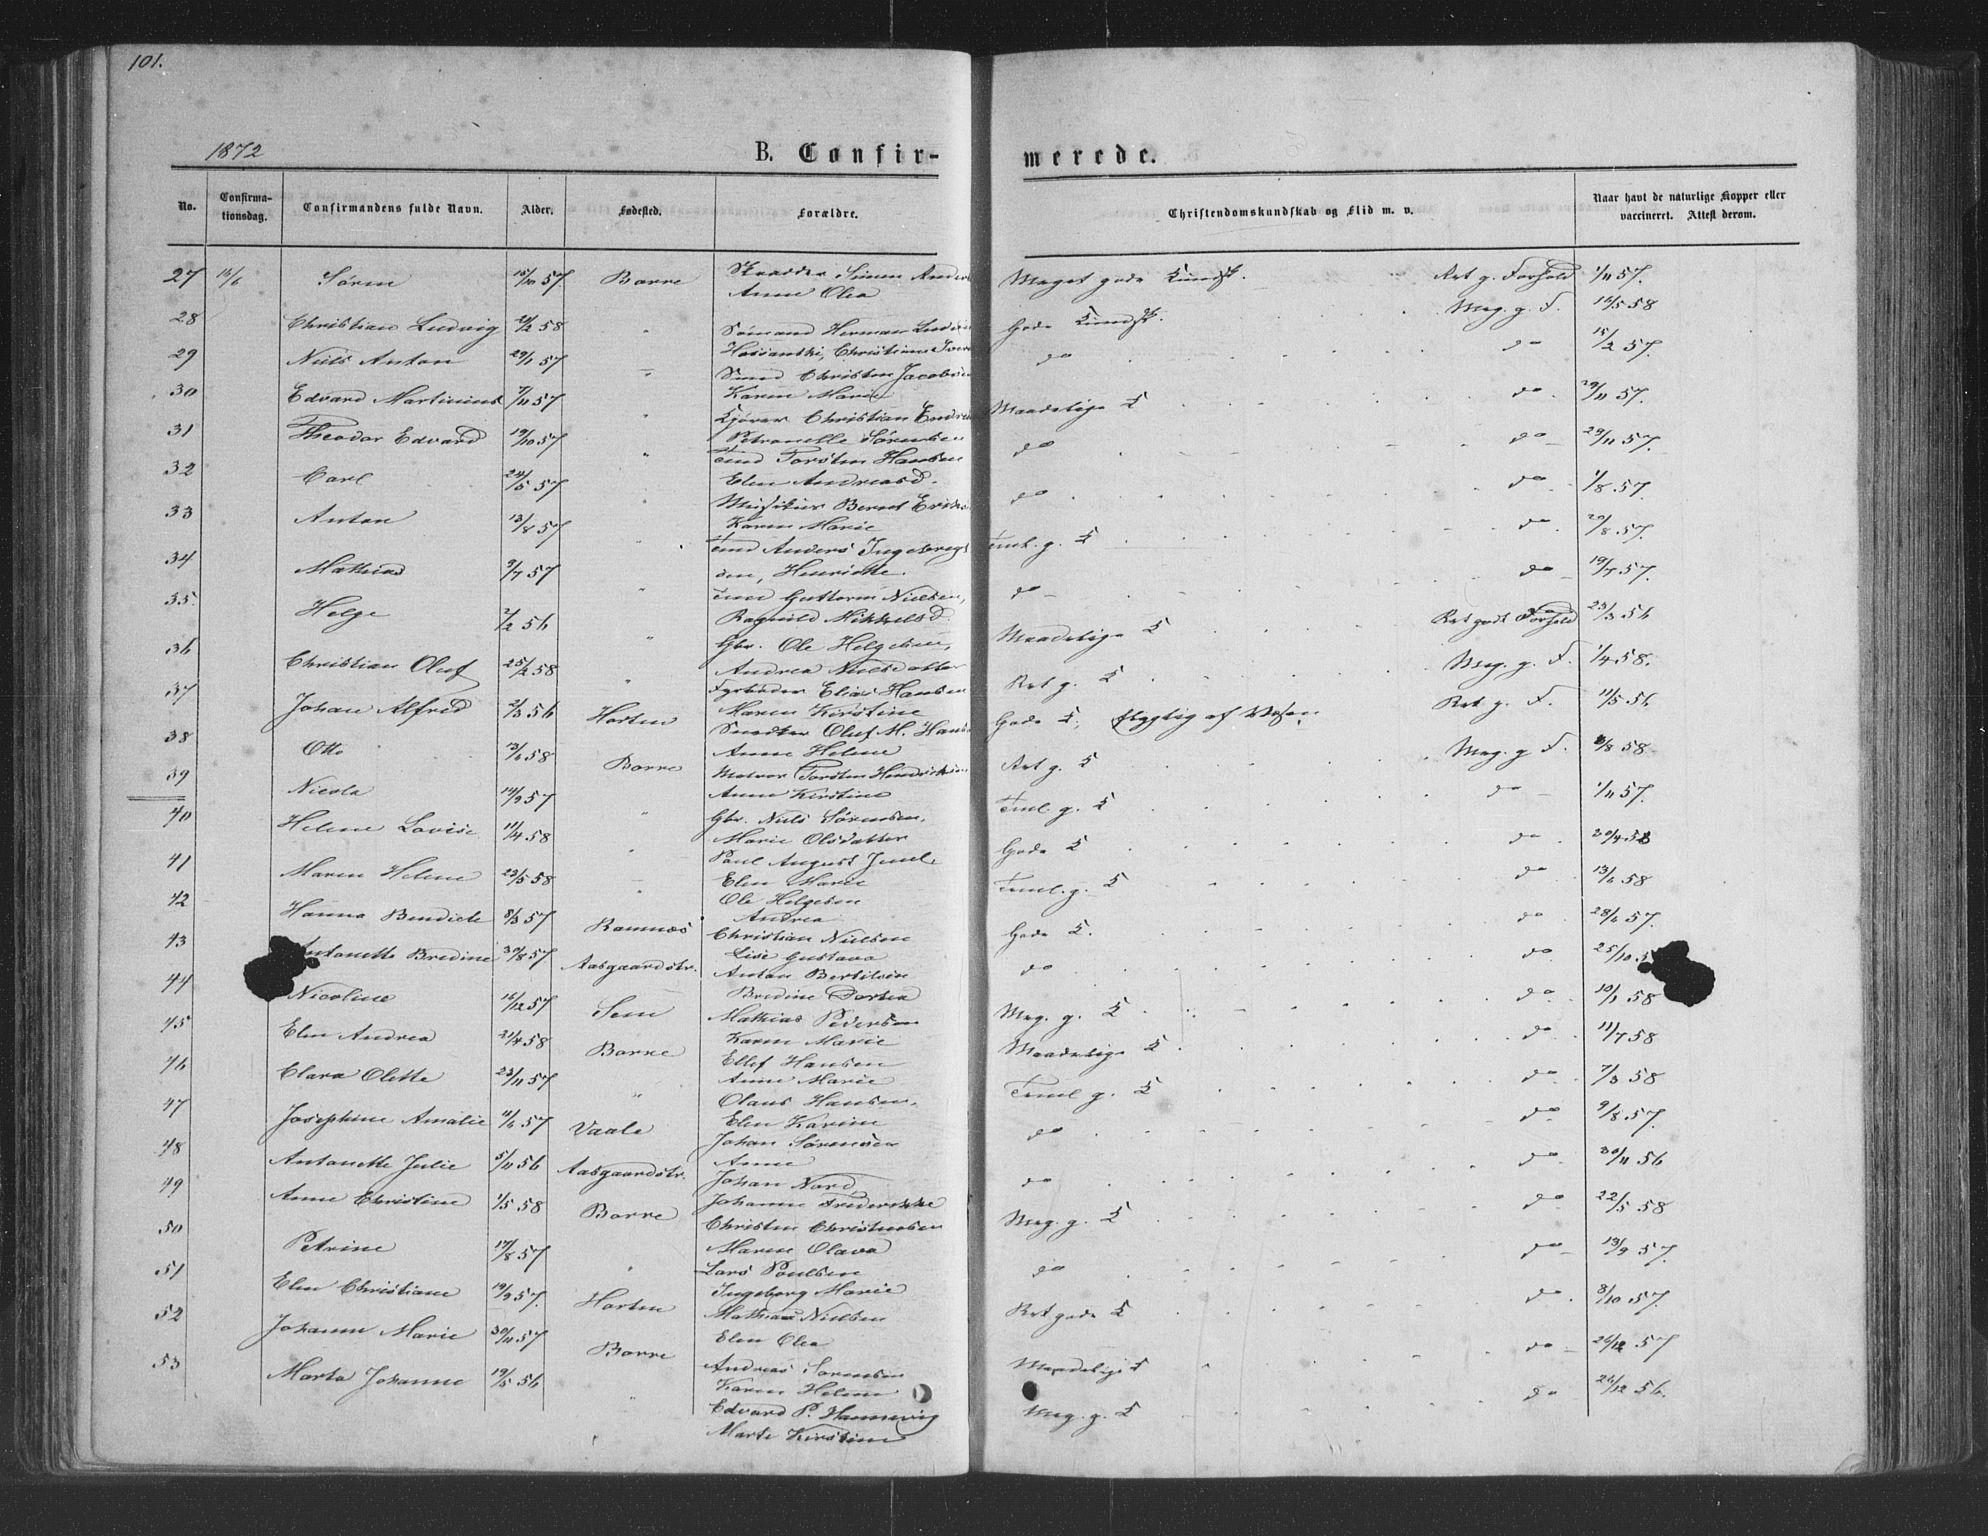 101.
1872 B. Confir- merede.
No. Confirma-tionsdag. Confirmandens fulde Navn. Alder. Fødested. Forældre. Christendomskundskab og Flid m. v. Naar havt de naturlige Kopper eller vaccineret. Attest derom.
27 16/6 Søren 15/10 57 Borre Simen Meget gode Kundsk. Ret g. Forhold 1/11 57.
Anne Olea
28 Christian Ludvig 21/2 58 " Sømand Herman Gode Kundsk. Meg. g. F. 16/5 58
Christiane
29 Niels Anton 29/1 57 " Christen Jacobsen do do 15/2 57.
Karen Marie
30 Edvard Martinius 7/11 57 " Christian Maadelige K do 29/11 57.
Petronelle Sørensen
31 Theodor Edvard 19/10 57 " Torsten Hansen do do 29/11 57.
Elen Andreasd.
32 Carl 24/5 57 Bernt do do 1/8 57.
Karen Marie
33 Anton 13/8 57 " Anders Ingebregt Teml. g. K do 20/8 57.
sen, Henriette.
34 Mathias 9/7 57 " Guttorm Nielsen, do do 19/7 57.
Ragnild Mikkelsd.
35. Helge 2/2 56 " Gbr. Ole Helgesen, Maadelige K Ret godt Forhold 23/3 56
Andrea Nielsdatter
36 Christian Oluf 25/2 58 " Elias Hansen Ret g. K Meg. g. F. 1/4 58.
Maren Kirstine
37 Johan Alfred 2/3 56 Horten Snedker Oluf M. Hans Gode K. flygtig af Væsen Ret g. F. 11/5 56
Anne Helene
38 Otto 13/6 58 Borre Torsten Hendriksen Ret g. K Meg. g. F. 8/8 58
Anne Kirstine
39 Nicola 14/9 57 " Gbr. Niels Sørensen, Teml. g. K do 1/11 57.
Marie Olsdatter
40 Helene Lovise 11/4 58 " Paul August Juul. Gode K do 30/4 58
Elen Marie
41 Maren Helene 23/5 58 " Ole Helgesen Teml. g. K do 13/6 58
Andrea
42 Hanna Bendicte 8/3 57 Ramnæs Christian Nielsen Gode K. do 28/6 57.
Lise Gustava
43 Antonette Bredine 30/8 57 Aasgaardstr. Anton Bertilsen do do 25/10
Bredine Dortea
44 Nicoline 16/12 57 Sem Mathias Pedersen Meg. g. K do 10/1 58
Karen Marie
45 Elen Andrea 21/4 58 Borre Ellef Hansen Maadelige K do 11/7 58
Anne Marie
46 Clara Olette 23/11 57 " Olaus Hansen. Teml g. K do 7/3 58
Elen Karine
47 Josephine Amalie 11/6 57 Vaale Johan Sørensen do do 9/8 57.
Anne
48 Antonette Julie 5/11 56 Aasgaardstr. Johan Nord do do 30/11 56
Johanne Frederikke
49 Anne Christine 1/5 58 Borre Christen Christensen Meg. g. K do 22/5 58
Maren Olava
50 Petrine 17/8 57 " Lars Poulsen do do 13/9 57.
Ingeborg Marie
51 Elen Christiane 19/9 57. Horten Mathias Nielsen Ret gode K do 8/10 57.
Elen Olea
52 Johanne Marie 30/11 57 Borre Andreas Sørensen Maadelige K do 26/12 57
Karen Helene
53 Marta Johanne 19/5 56 " Edvard P. Hannevig Meg. g. K do 26/12 56.
Marte Kirstine